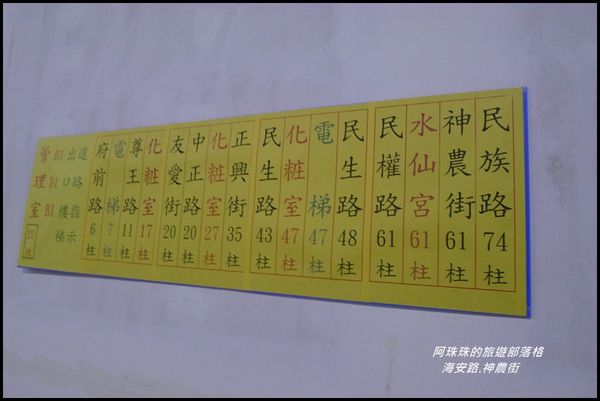 管理室
B1 B1 B1
出口樓梯
道路指示
府前路6柱
電梯7柱
尊王路11柱
化粧室17柱
友愛街20柱
中正路20柱
化粧室27柱
正興街35柱
民生路43柱
化粧室47柱
電梯47柱
民生路48柱
民權路61柱
水仙宮61柱
神農街61柱
民族路74柱
阿珠珠的旅遊部落格
海安路.神農街